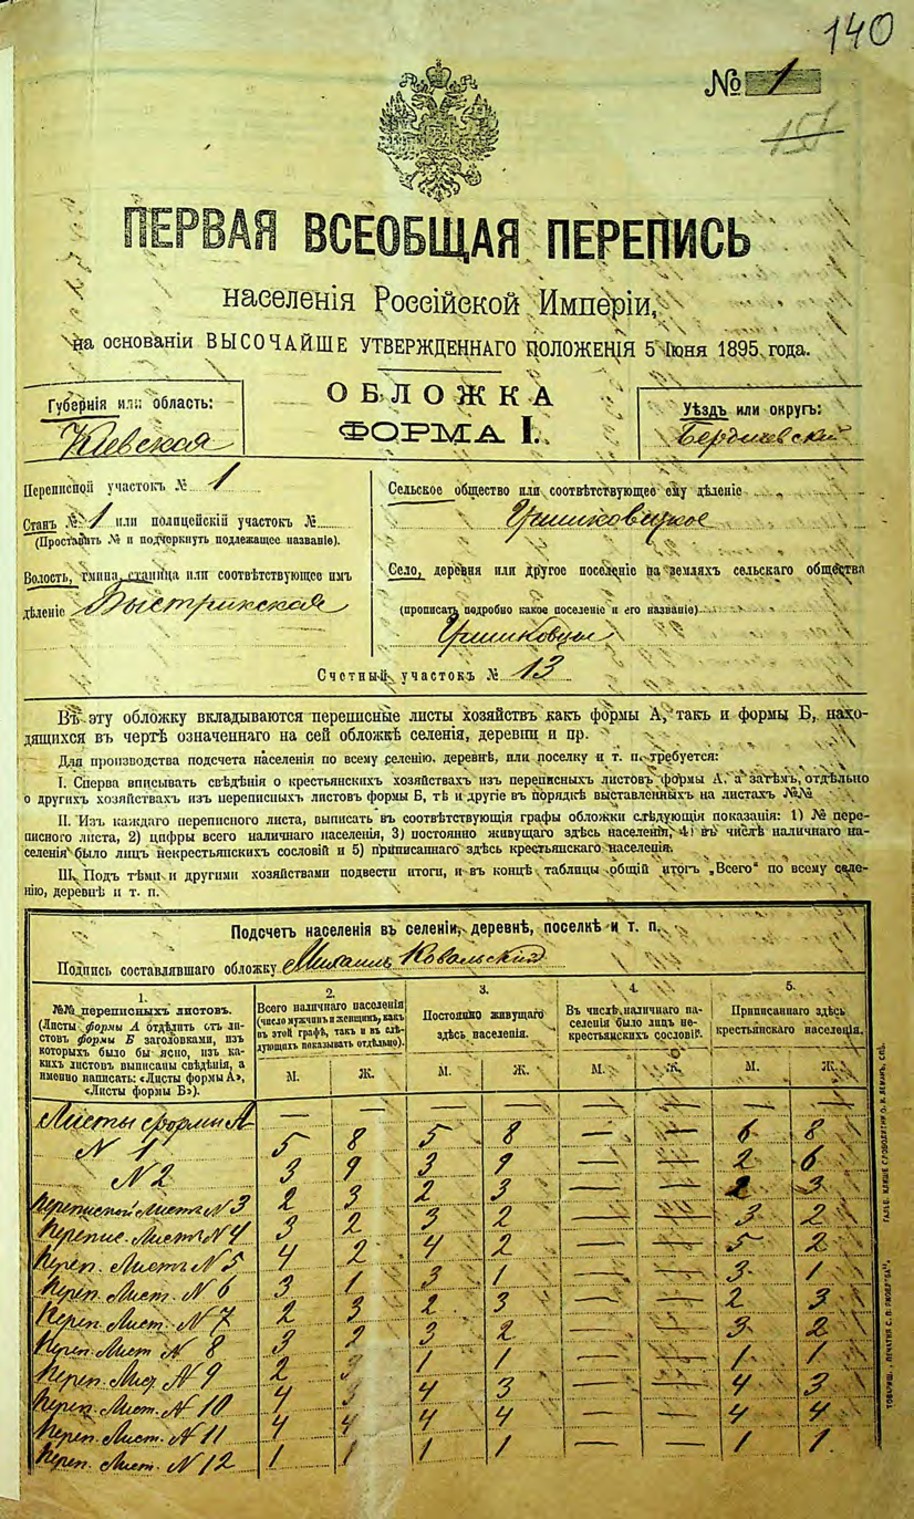 140
№ 1
151
ПЕРВАЯ ВСЕОБЩАЯ ПЕРЕПИСЬ
населенія Россійской Имперіи,
на основаніи ВЫСОЧАЙШЕ УТВЕРЖДЕННАГО ПОЛОЖЕНІЯ 5 Іюня 1895 года.
ОБЛОЖКА
ФОРМА I.
Губернія или область:
Кіевская
Уѣздъ или округъ:
Бердичевскій
Переписной участокъ № 1
Станъ № 1 или полицейскій участокъ №
(Проставить № и подчеркнуть подлежащее названіе).
Волость, гмина, станица или соотвѣтствующее имъ
дѣленіе Быстрикская
Сельское общество или соотвѣтствующее ему дѣленіе
Гришковецкое
Село, деревня или другое поселеніе на земляхъ сельскаго общества
(прописать подробно какое поселеніе и его названіе)
Гришковцы
Счетный участокъ № 13
Въ эту обложку вкладываются переписные листы хозяйствъ какъ формы А, такъ и формы Б, нахо-
дящихся въ чертѣ означеннаго на сей обложкѣ селенія, деревни и пр.
Для производства подсчета населенія по всему селенію, деревнѣ, или поселку и т. п. требуется:
I. Сперва вписывать свѣдѣнія о крестьянскихъ хозяйствахъ изъ переписныхъ листовъ формы А, а затѣмъ, отдѣльно
о другихъ хозяйствахъ изъ переписныхъ листовъ формы Б, тѣ и другіе въ порядкѣ выставленныхъ на листахъ №№
II. Изъ каждаго переписного листа, выписать въ соотвѣтствующія графы обложки слѣдующія показанія: 1) № пере-
писного листа, 2) цифры всего наличнаго населенія, 3) постоянно живущаго здѣсь населенія, 4) въ числѣ наличнаго на-
селенія было лицъ некрестьянскихъ сословій и 5) приписаннаго здѣсь крестьянскаго населенія.
III. Подъ тѣми и другими хозяйствами подвести итоги, и въ концѣ таблицы общій итогъ „Всего“ по всему селе-
нію, деревнѣ и т. п.
Подсчетъ населенія въ селеніи, деревнѣ, поселкѣ и т. п.
Подпись составлявшаго обложку Михаилъ Ковальскій
1.
№№ переписныхъ листовъ.
(Листы формы А отдѣлить отъ ли-
стовъ формы Б заголовками, изъ
которыхъ было бы ясно, изъ ка-
кихъ листовъ выписаны свѣдѣнія, а
именно написать: «Листы формы А»,
«Листы формы Б»).
2.
Всего наличнаго населенія
(число мужчинъ и женщинъ, какъ
въ этой графѣ, такъ и въ слѣ-
дующихъ показывать отдѣльно).
3.
Постоянно живущаго
здѣсь населенія.
4.
Въ числѣ наличнаго на-
селенія было лицъ не-
крестьянскихъ сословій.
5.
Приписаннаго здѣсь
крестьянскаго населенія.
М. Ж. М. Ж. М. Ж. М. Ж.
Листы формы А — — — — — — — —
N 1 5 8 5 8 — — 6 8
N 2 3 9 3 9 — — 2 6
Переписной Листъ N 3 2 3 2 3 — — 2 3
Перепис. Листъ N 4 3 2 3 2 — — 3 2
Переп. Листъ N 5 4 2 4 2 — — 5 2
Переп. Лист. N 6 3 1 3 1 — — 3 1
Переп. Лист. N 7 2 3 2 3 — — 2 3
Переп. Лист N 8 3 2 3 2 — — 3 2
Переп. Лист. N 9 2 1 1 — — 1 1
Переп. Лист. N 10 4 3 4 3 — — 4 3
Переп. Лист. N 11 4 4 4 4 — — 4 4
Переп. Лист. N 12 1 1 1 1 — — 1 1